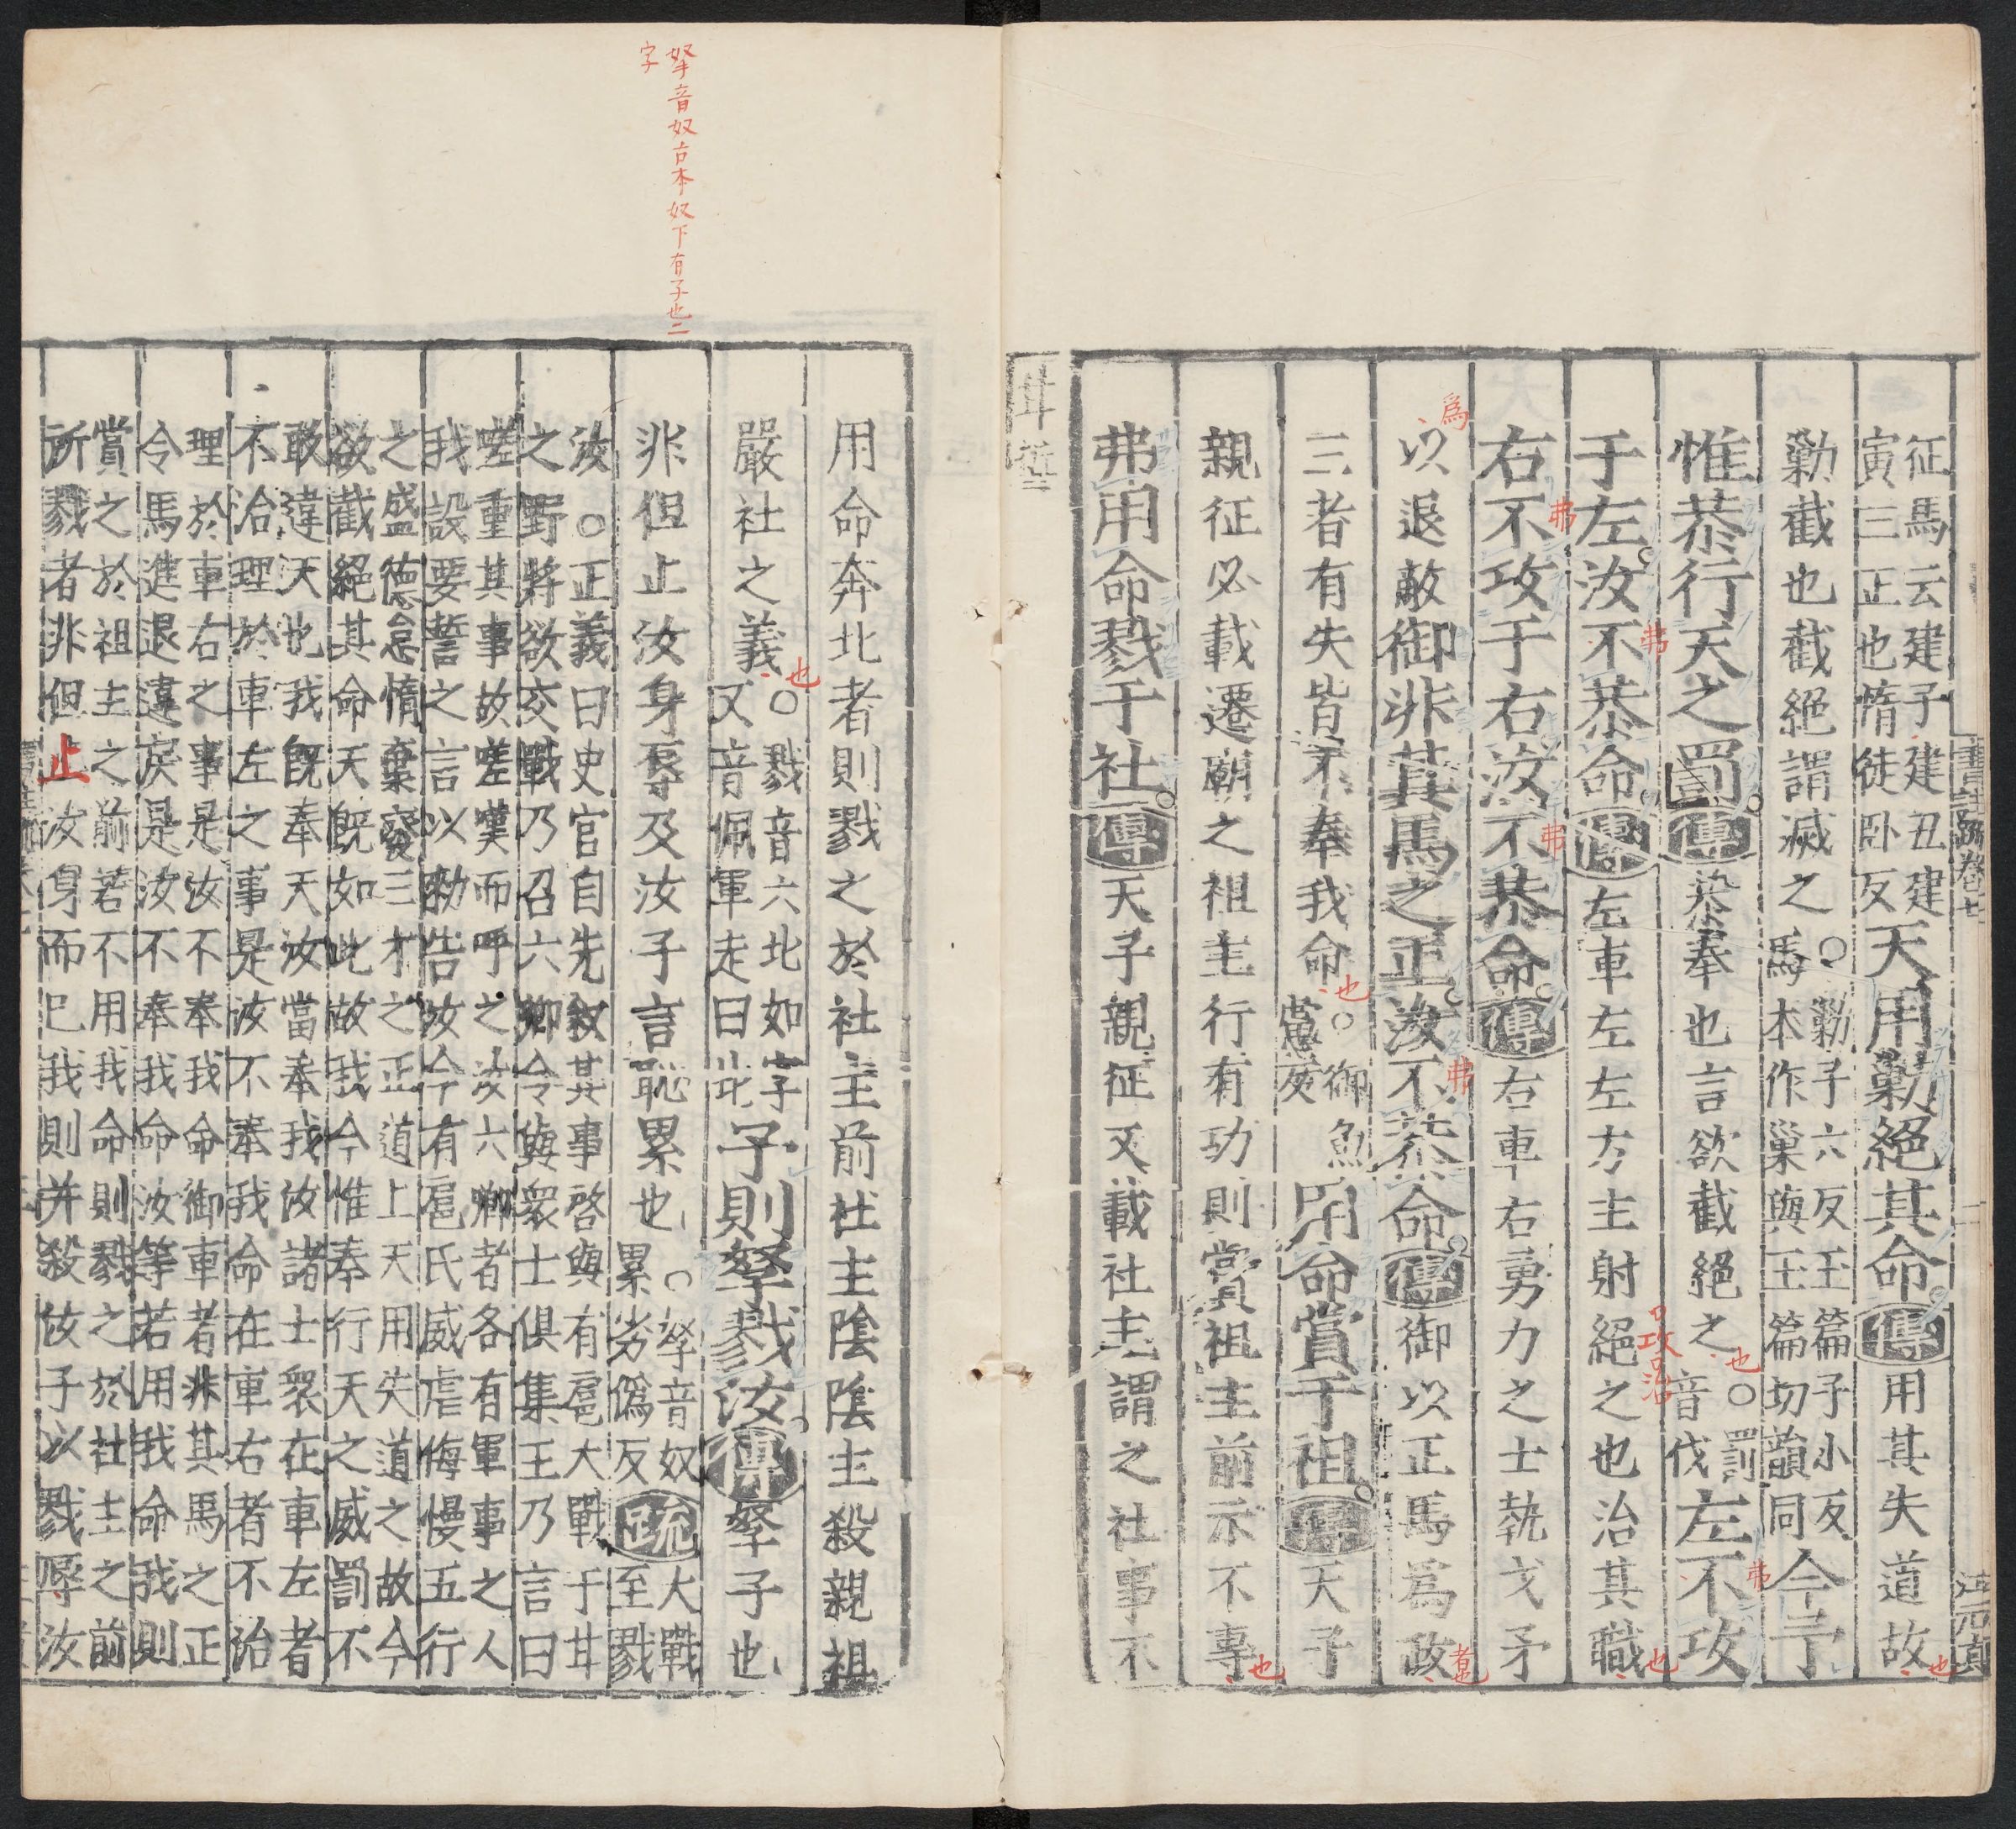 征馬云建子建丑建
寅三正也惰徒卧反天用勦絕其命傳用其失道故也
勦截也截絕謂滅之○勦子六反玉篇子小反
馬本作巢與玉篇切韻同今予
惟恭行天之罰傳恭奉也言欲截絕之也○罰
音伐左不攻
弗
于左汝不恭命傳左車左左方主射絕之也治其職也
弗
攻治
右不攻于右汝不恭命傳右車右勇力之士執戈矛
弗
弗
以退敵御非其馬之正汝不恭命傳御以正馬為政
為
弗
者也
三者有失皆不奉我命也○御魚
慮反用命賞于祖傳天子
親征必載遷廟之祖主行有功則賞祖主前示不專也
弗用命戮于社傳天子親征又載社主謂之社事不
書註疏卷七
二
甘誓
孥音奴古本奴下有子也二
字
用命奔北者則戮之於社主前社主陰陰主殺親祖
嚴社之義也○戮音六北如字
又音佩軍走曰北予則孥戮汝傳孥子也
非但止汝身辱及汝子言恥累也○孥音奴
累劣偽反疏大戰
至戮
汝○正義曰史官自先敘其事啓與有扈大戰于甘
之野將欲交戰乃召六卿令與眾士俱集王乃言曰
嗟重其事故嗟嘆而呼之汝六卿者各有軍事之人
我設要誓之言以勑告汝今有扈氏威虐侮慢五行
之盛德怠惰棄廢三才之正道上天用失道之故今
欲截絕其命天既如此故我今惟奉行天之威罰不
敢違天也我既奉天汝當奉我汝諸士眾在車左者
不治理於車左之事是汝不奉我命在車右者不治
理於車右之事是汝不奉我命御車者非其馬之正
令馬進退違戾是汝不奉我命汝等若用我命我則
賞之於祖主之前若不用我命則戮之於社主之前
所戮者非但止汝身而已我則并殺汝子以戮辱汝